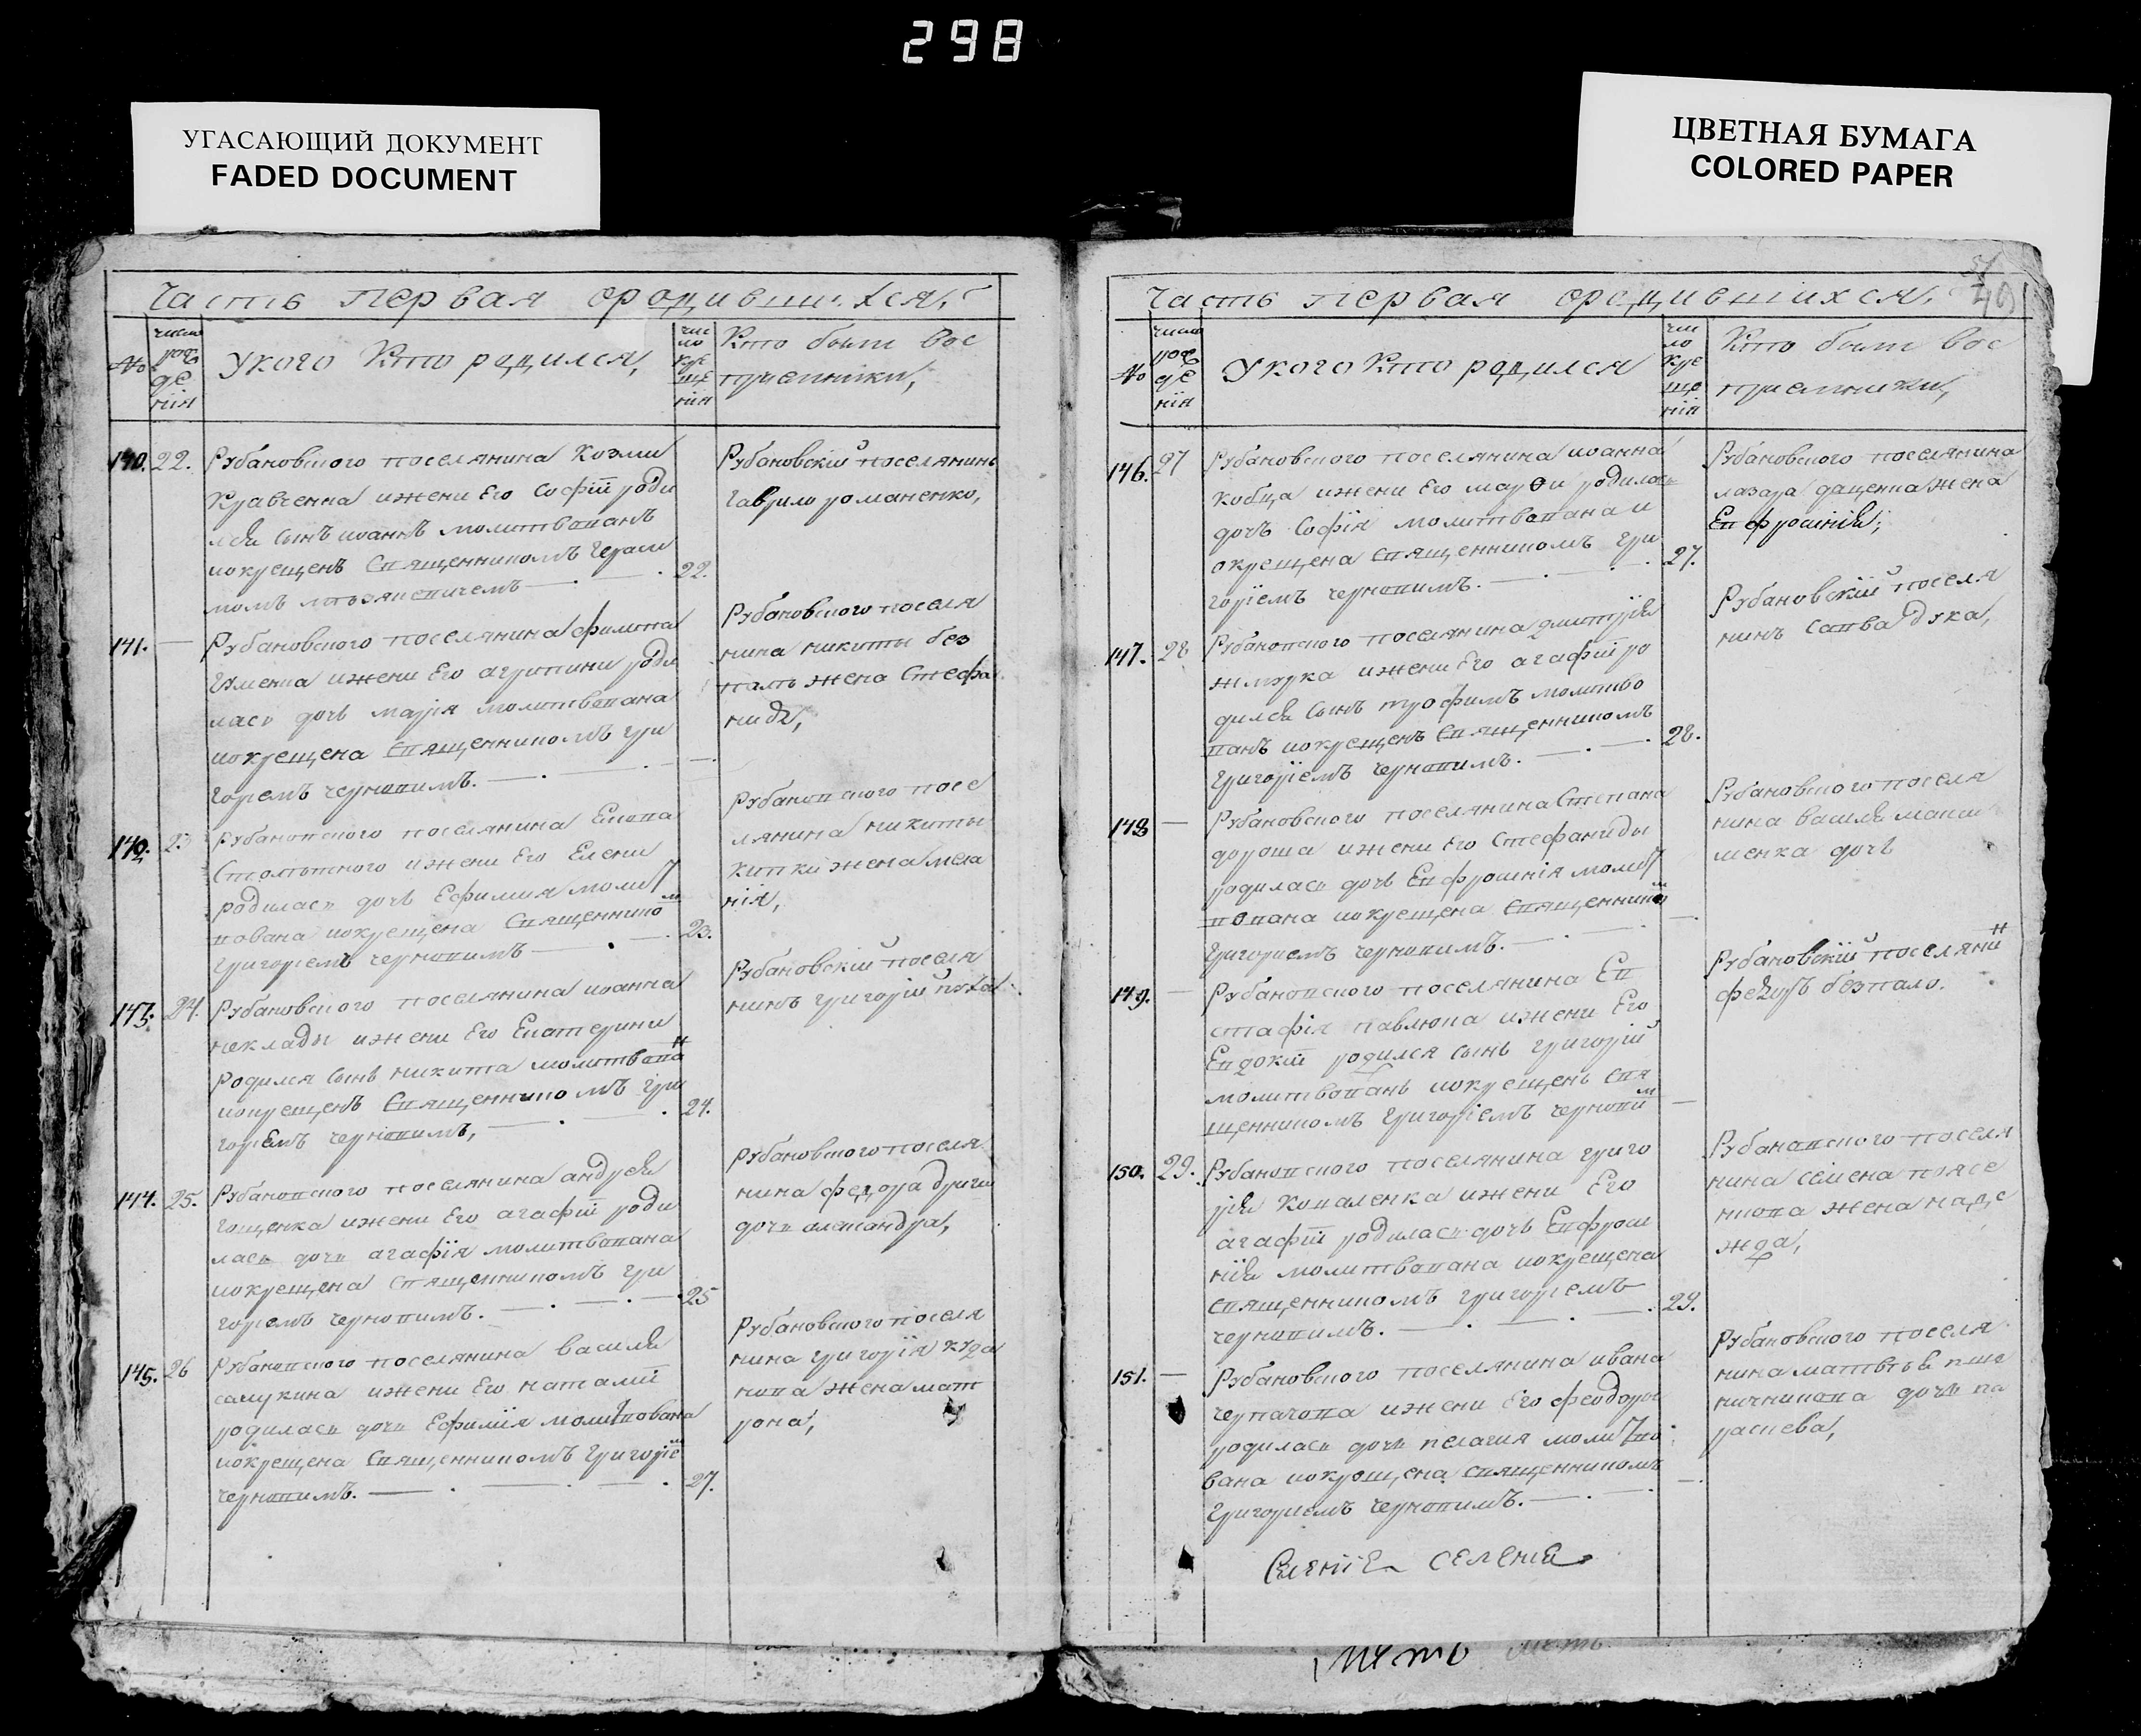 298
УГАСАЮЩИЙ ДОКУМЕНТ
FADED DOCUMENT
ЦВЕТНАЯ БУМАГА
COLORED PAPER
Часть первая ородившихся,
№
число рождения
У кого кто родился,
число крещения
Кто были вос
приемники,
140. 22. Рубановского поселянина козми
Кравченка ижени Его Софіи роди
лся сынъ иоаннъ молитвованъ
иокрещенъ Священникомъ Гераси
момъ 22.
Рубановскій поселянинъ
Гаврило романенко,
141. — Рубановского поселянина филипа
ижени Его агрипини роди
лась дочь марія молитвована
иокрещена Священникомъ гри
горіемъ черновимъ. —
Рубановского поселя
нина никиты без
палъ жена Стефа
нида,
142. 23 Рубановского поселянина
ижени Его Елени
родилась дочь Ефимия молит
вована иокрещена Священнико
м
Григоріемъ черновимъ 23.
Рубановского посе
лянина никиты
китки жена мела
нія,
143. 24. Рубановского поселянина иоанна
неклады ижени Его Екатерини
родился сынъ никита молитвова
н
иокрещенъ Священникомъ гри
горіемъ черновимъ, 24.
Рубановскій поселя
нинъ григорій пуха
144. 25. Рубановского поселянина андрея
гощенка ижени Его агафіи роди
лась дочь агафія молитвована
иокрещена Священникомъ гри
горіемъ черновимъ. 25
Рубановского поселя
нина федора
дочь александра,
145. 26 Рубановского поселянина василя
самукина ижени Его наталіи
родилась дочь Ефимія молитвована
иокрещена Священникомъ Григоріе
м
черновимъ. 27.
Рубановского поселя
нина григорія
жена мат
рона,
Часть первая ородившихся,
49
№
число рождения
У кого кто родился
число крещения
Кто были вос
приемники,
146. 27 Рубановского поселянина иоанна
кобца ижени Его марѳи родилась
дочь Софія молитвована и
окрещена Священникомъ гри
горіемъ черновимъ. 27.
Рубановского поселянина
лазара даценка жена
Евфросинія,
147. 28 Рубановского поселянина дмитрія
жмурка ижени Его агафіи ро
дился сынъ трофимъ молитво
ванъ иокрещенъ Священникомъ
Григоріемъ черновимъ. 28.
Рубановскій поселя
нинъ Савва дука,
148 — Рубановского поселянина Степана
дороша ижени Его Стефаниды
родилась дочь Евфросинія молит
вована иокрещена Священнико
м
Григориемъ черновимъ. —
Рубановского поселя
нина василя макси
менка дочь
149. — Рубановского поселянина Ев
стафія павлюка ижени Его
Евдокіи родился сынъ григорій
молитвованъ иокрещенъ Свя
щенникомъ Григоріемъ чернови
м
—
Рубановскій поселяни
н
федоръ безпало.
150. 29. Рубановского поселянина григо
рія Коваленка ижени Его
агафіи родилась дочь Евфроси
нія молитвована иокрещена
священникомъ григоріемъ
черновимъ. 29.
Рубановского поселя
нина семена
жена наде
жда,
151. — Рубановского поселянина ивана
ижени Его феодоры
родилась дочь пелагия молитво
вана иокрещена священникомъ
Григориемъ черновимъ. —
Рубановского поселя
нина матвѣя
дочь па
раскева,